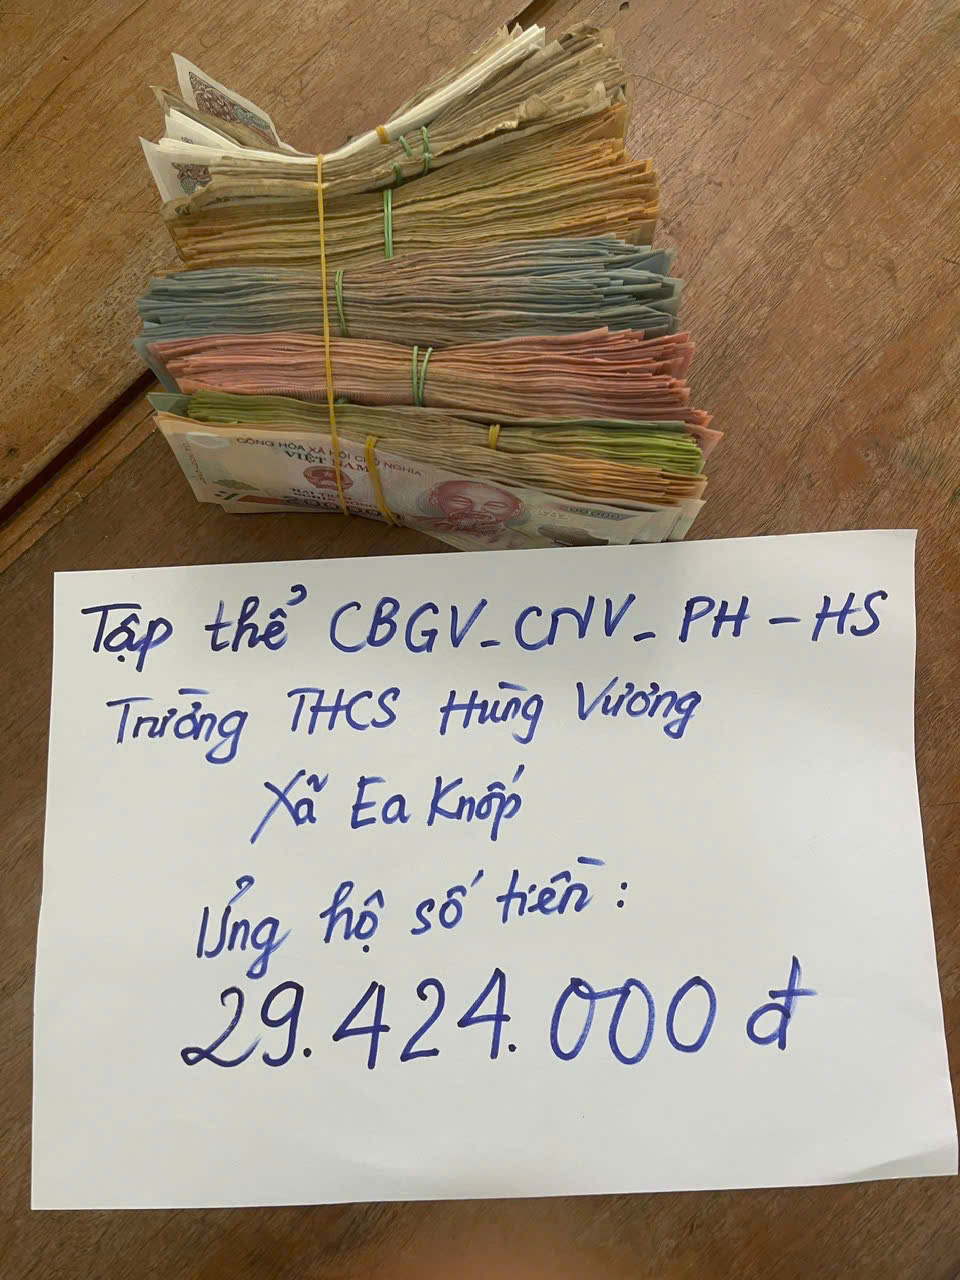 CỘNG HÒA XÃ HỘI CHỦ NGHĨA
VIỆT NAM
HAI TRĂM
Tập thể CBGV_CNV_PH-HS
Trường THCS Hùng Vương
Xã Ea Knốp
Ủng hộ số tiền:
29.424.000 đ